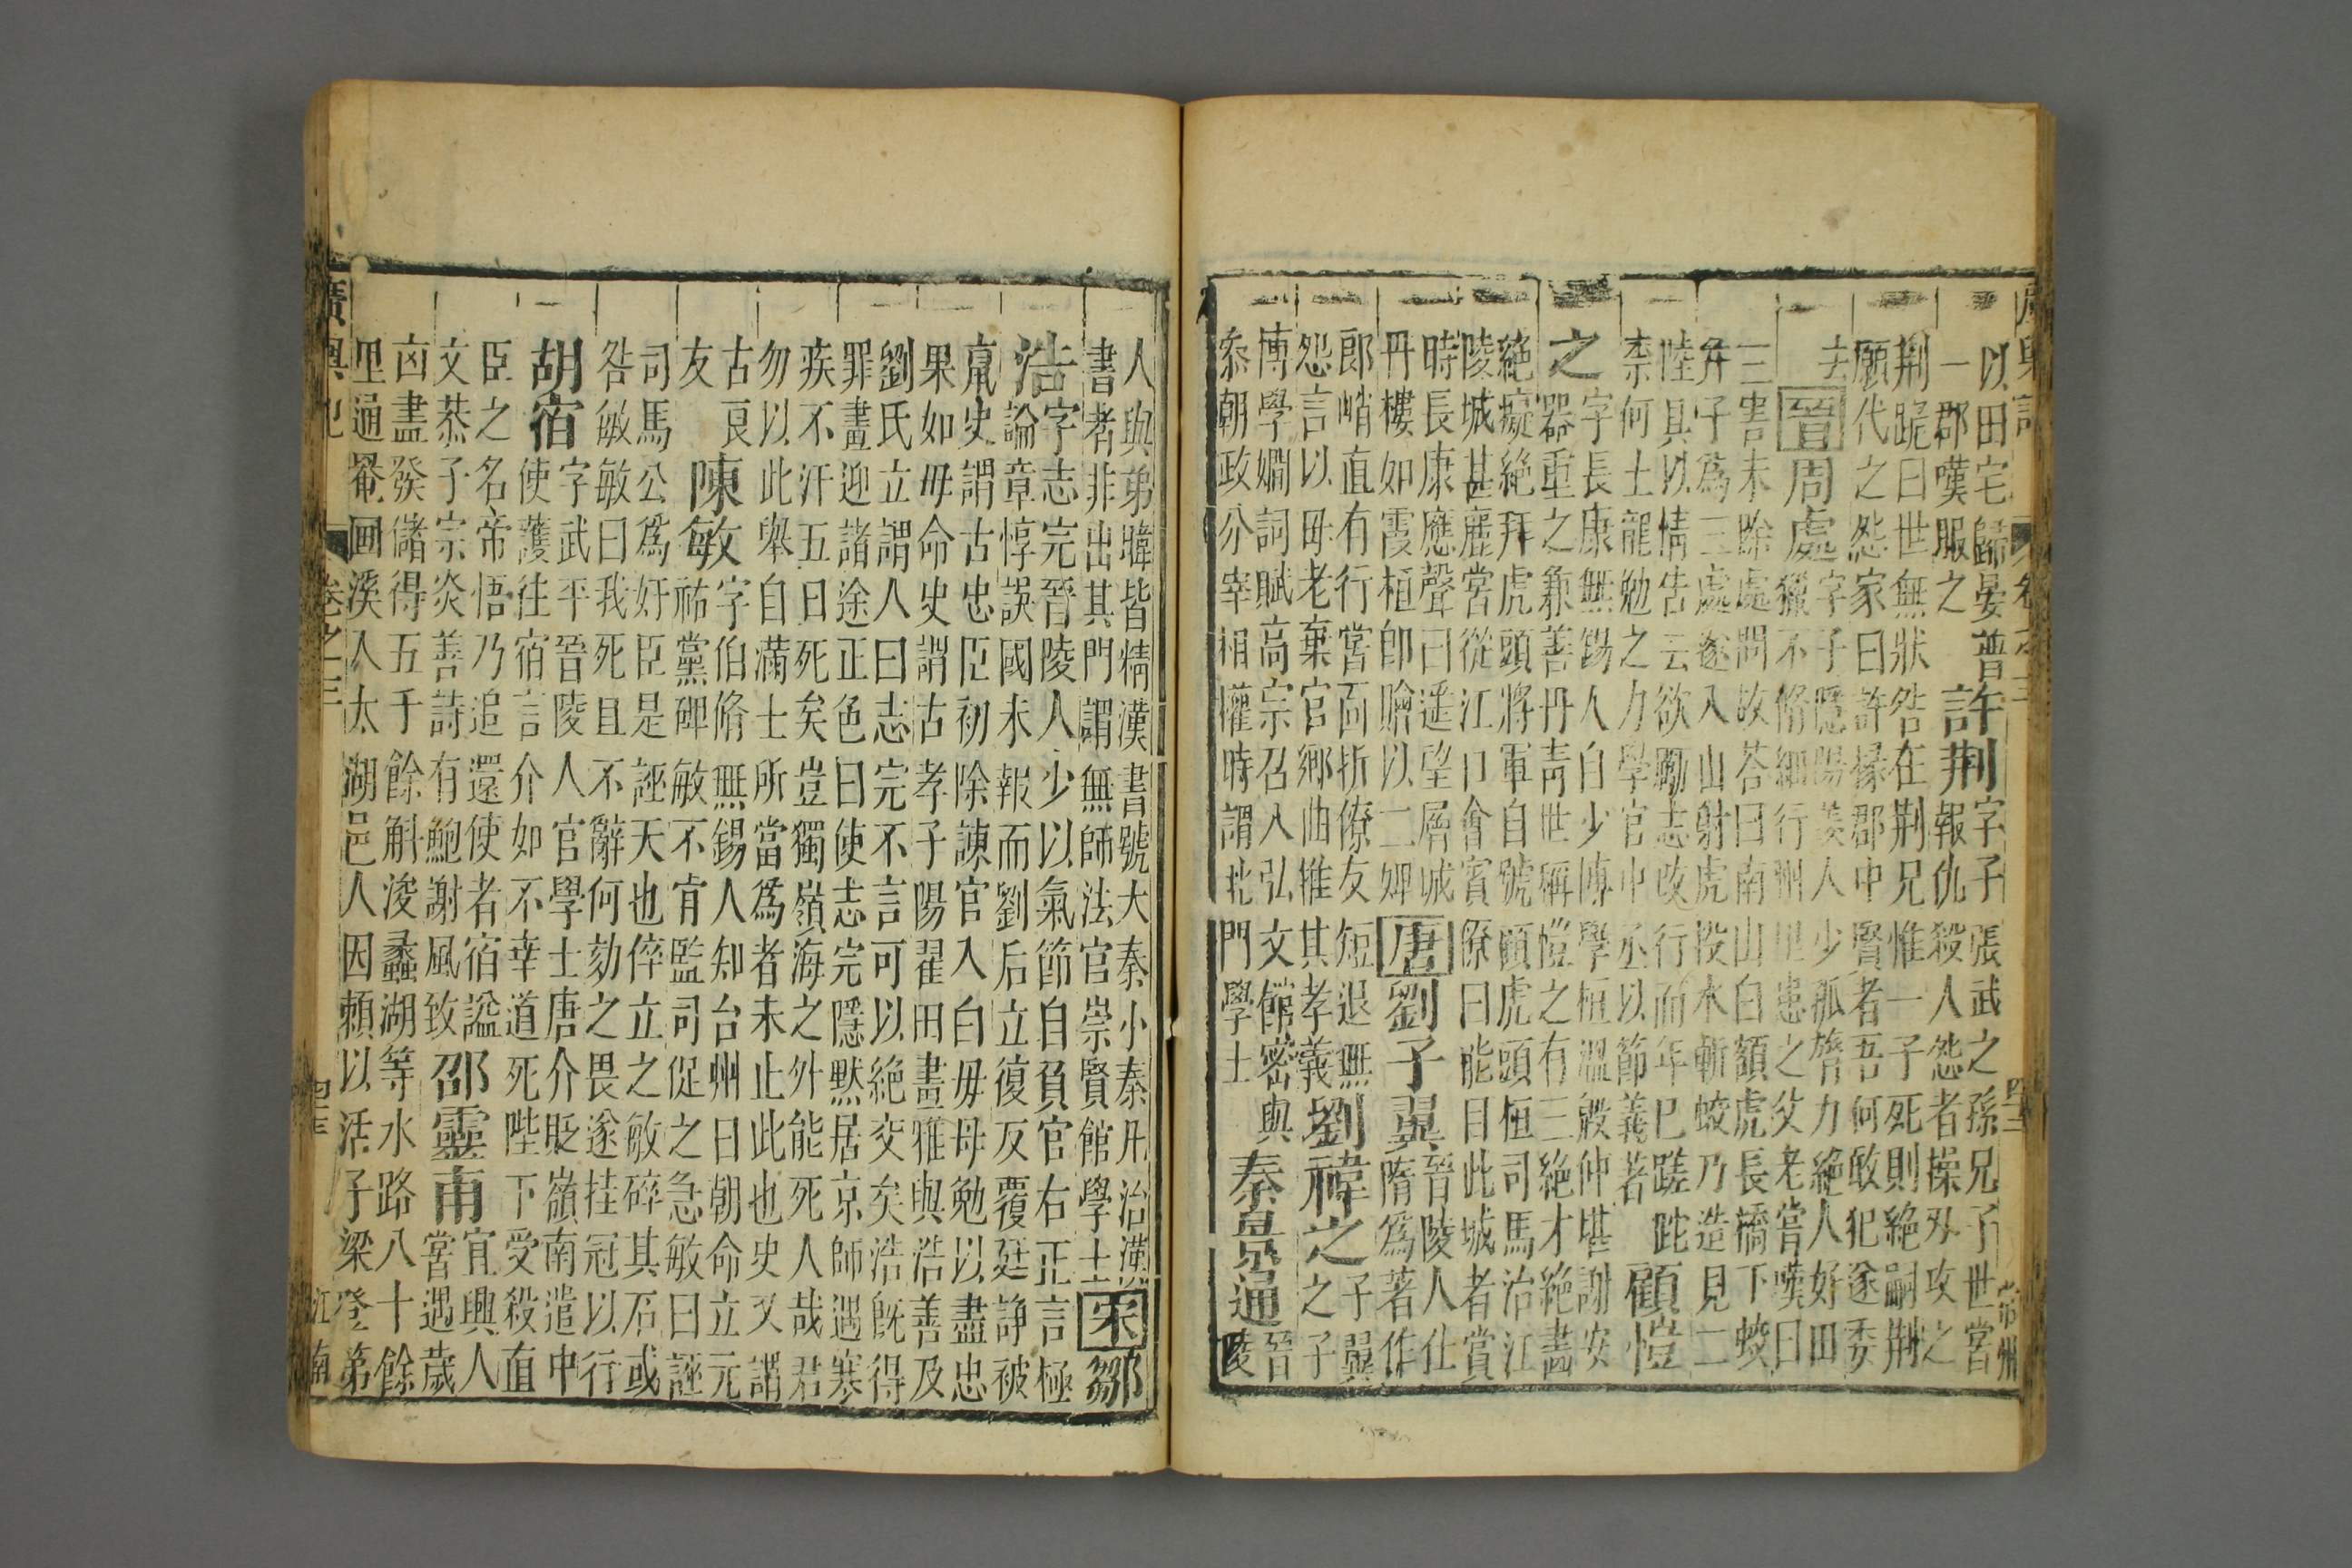 廣輿記
卷之三
四十三
常州
以田宅歸晏普 許荆 字子張武之孫兄子世嘗
一郡嘆服之 報仇殺人怨者操兵攻之
荆跪曰世無狀咎在荆兄惟一子死則絕嗣荆
願代之怨家曰許掾郡中賢者吾何敢犯遂委
去 晉 周處 字子隱陽羨人少孤膂力絕人好田
獵不脩細行州里患之父老嘗嘆曰
三害未除處問故荅曰南山白額虎長橋下蛟
并子為三處遂入山射虎投水斬蛟乃造見二
陸具以情告云欲勵志改行而年已蹉跎
柰何士龍勉之力學官中丞以節義著 顧愷
之 字長康無錫人自少博學桓溫殷仲堪謝安
器重之兼善丹青世稱愷之有三絕才絕畫
絕癡絕拜虎頭將軍自號顧虎頭桓司馬治江
陵城甚麗嘗從江口會賓僚曰能目此城者賞
時長康應聲曰遙望層城
丹樓如霞桓即贈以二婢 唐 劉子翼 晉陵人仕隋為著作
郎峭直有行嘗面折僚友短退無
怨言以毋老棄官鄉曲推其孝義 劉禕之 子翼之子
博學嫺詞賦高宗召入弘文館密與
叅朝政分宰相權時謂北門學士 秦景通 晉陵
人與弟暐皆精漢書號大秦小秦凡治漢
書者非出其門謂無師法官崇賢館學士 宋 鄒
浩 字志完晉陵人少以氣節自負官右正言極
論章惇誤國未報而劉后立復反覆廷諍被
竄史謂古忠臣初除諫官入白毋毋勉以盡忠
果如毋命史謂古孝子陽翟田畫雅與浩善及
劉氏立謂人曰志完不言可以絕交矣浩既得
罪畫迎諸途正色曰使志完隱默居京師遇寒
疾不汗五日死矣豈獨嶺海之外能死人哉君
勿以此舉自滿士所當為者未止此也史又謂
古良友 陳敏 字伯脩無錫人知台州曰朝命立元
祐黨碑敏不肯監司促之急敏曰誣
司馬公為奸臣是誣天也倅立之敏碎其石或
咎敏敏曰我死且不辭何劾之畏遂挂冠以行
胡宿 字武平晉陵人官學士唐介貶嶺南遣中
使護往宿言介如不幸道死陛下受殺直
臣之名帝悟乃追還使者宿謚
文恭子宗炎善詩有鮑謝風致 邵靈甫 宜興人嘗遇歲
凶盡發儲得五千餘斛浚蠡湖等水路八十餘
里通罨畫溪入太湖邑人因賴以活子梁登第
廣輿記
卷之三
四十三
江南